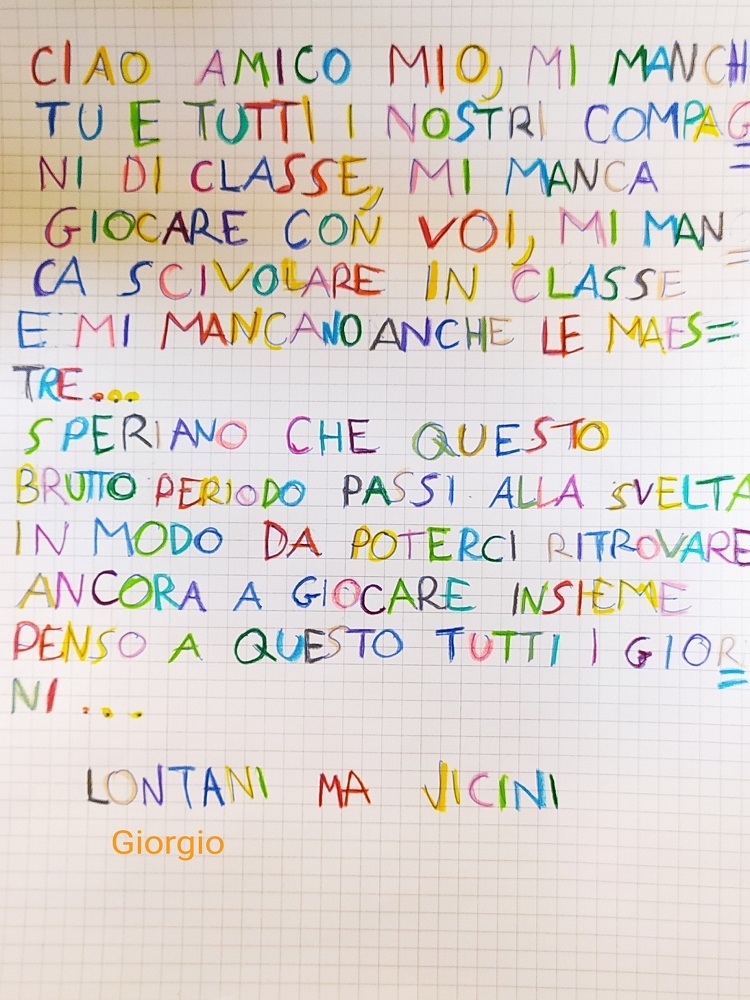 CIAO AMICO MIO, MI MANCHI
TU E TUTTI I NOSTRI COMPAG=
NI DI CLASSE, MI MANCA
GIOCARE CON VOI, MI MAN=
CA SCIVOLARE IN CLASSE
E MI MANCANO ANCHE LE MAES=
TRE...
SPERIANO CHE QUESTO
BRUTTO PERIODO PASSI ALLA SVELTA
IN MODO DA POTERCI RITROVARE
ANCORA A GIOCARE INSIEME
PENSO A QUESTO TUTTI I GIOR=
NI...
LONTANI MA VICINI
Giorgio